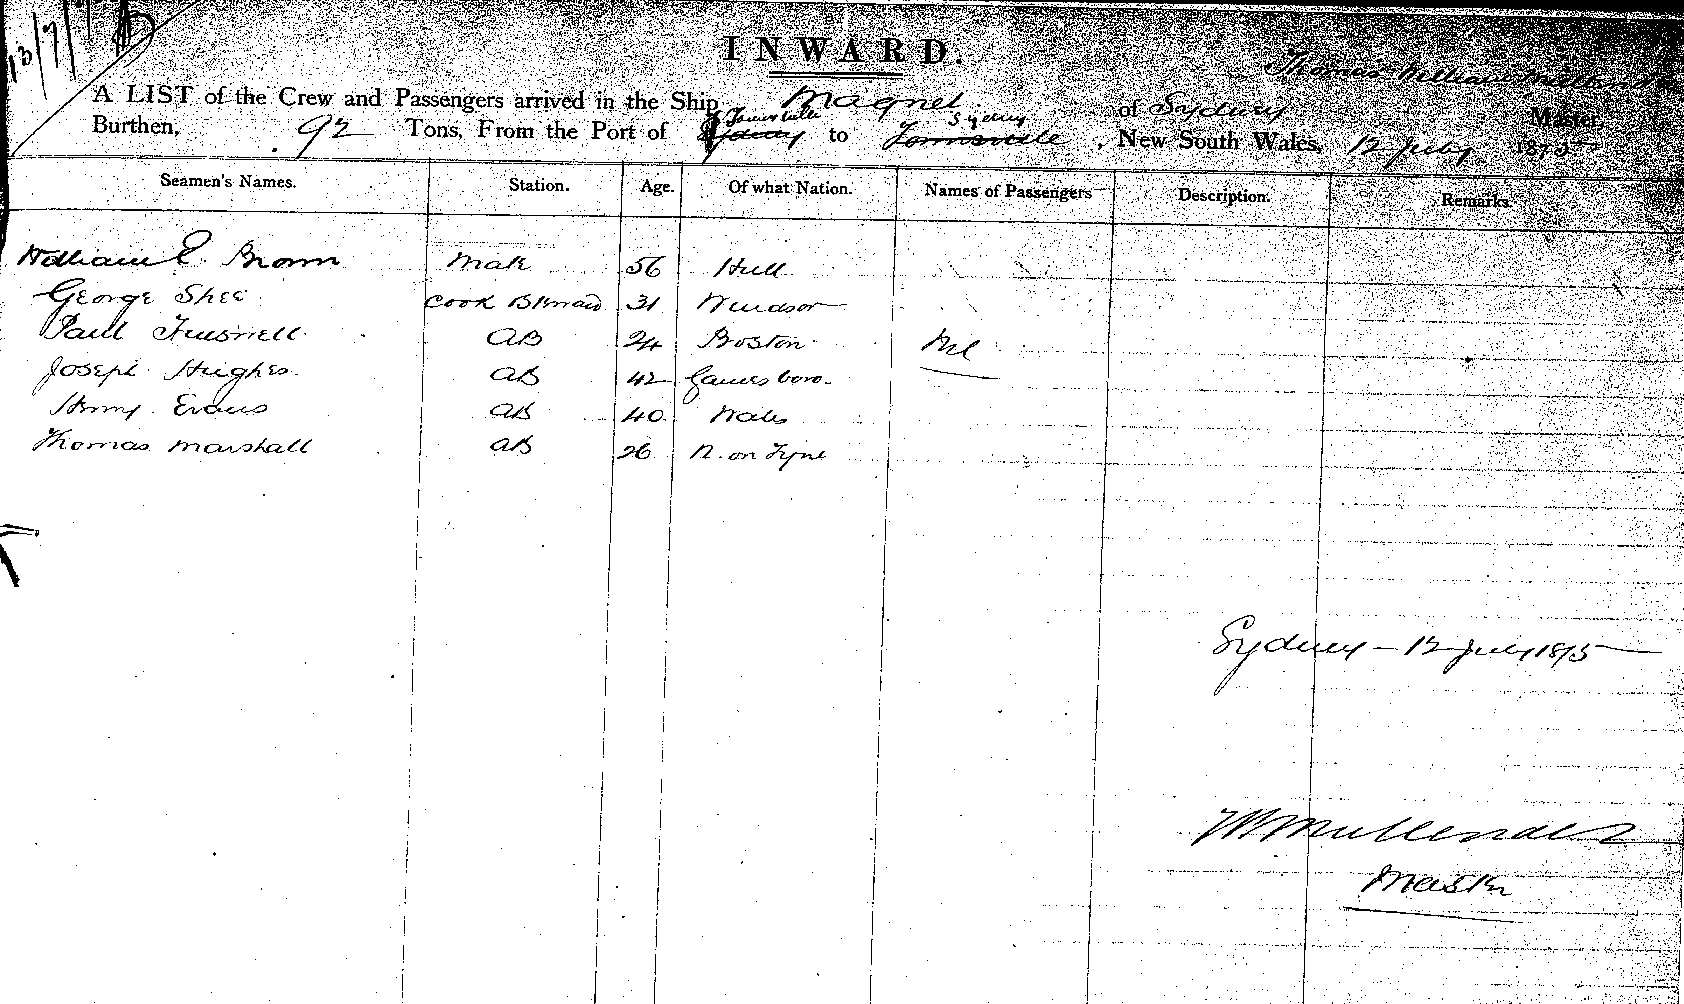 13/7/
INWARD.
Thomas William
A LIST of the Crew and Passengers arrived in the Ship Magnet of Sydney Master
Townsville Sydney
Burthen, 92 Tons, From the Port of Sydney to Townsville, New South Wales, 12 July 1875
Seamen's Names. Station. Age. Of what Nation. Names of Passengers Description. Remarks.
William E. Brown Mate 56 Hull
George Shee Cook & Steward 31 Windsor
Paul AB 24 Boston Nil
Joseph Hughes AB 42 Gainesboro
Henry Evans AB 40 Wales
Thomas Marshall AB 26 N. on Tyne
Sydney - 12 July 1875
Master